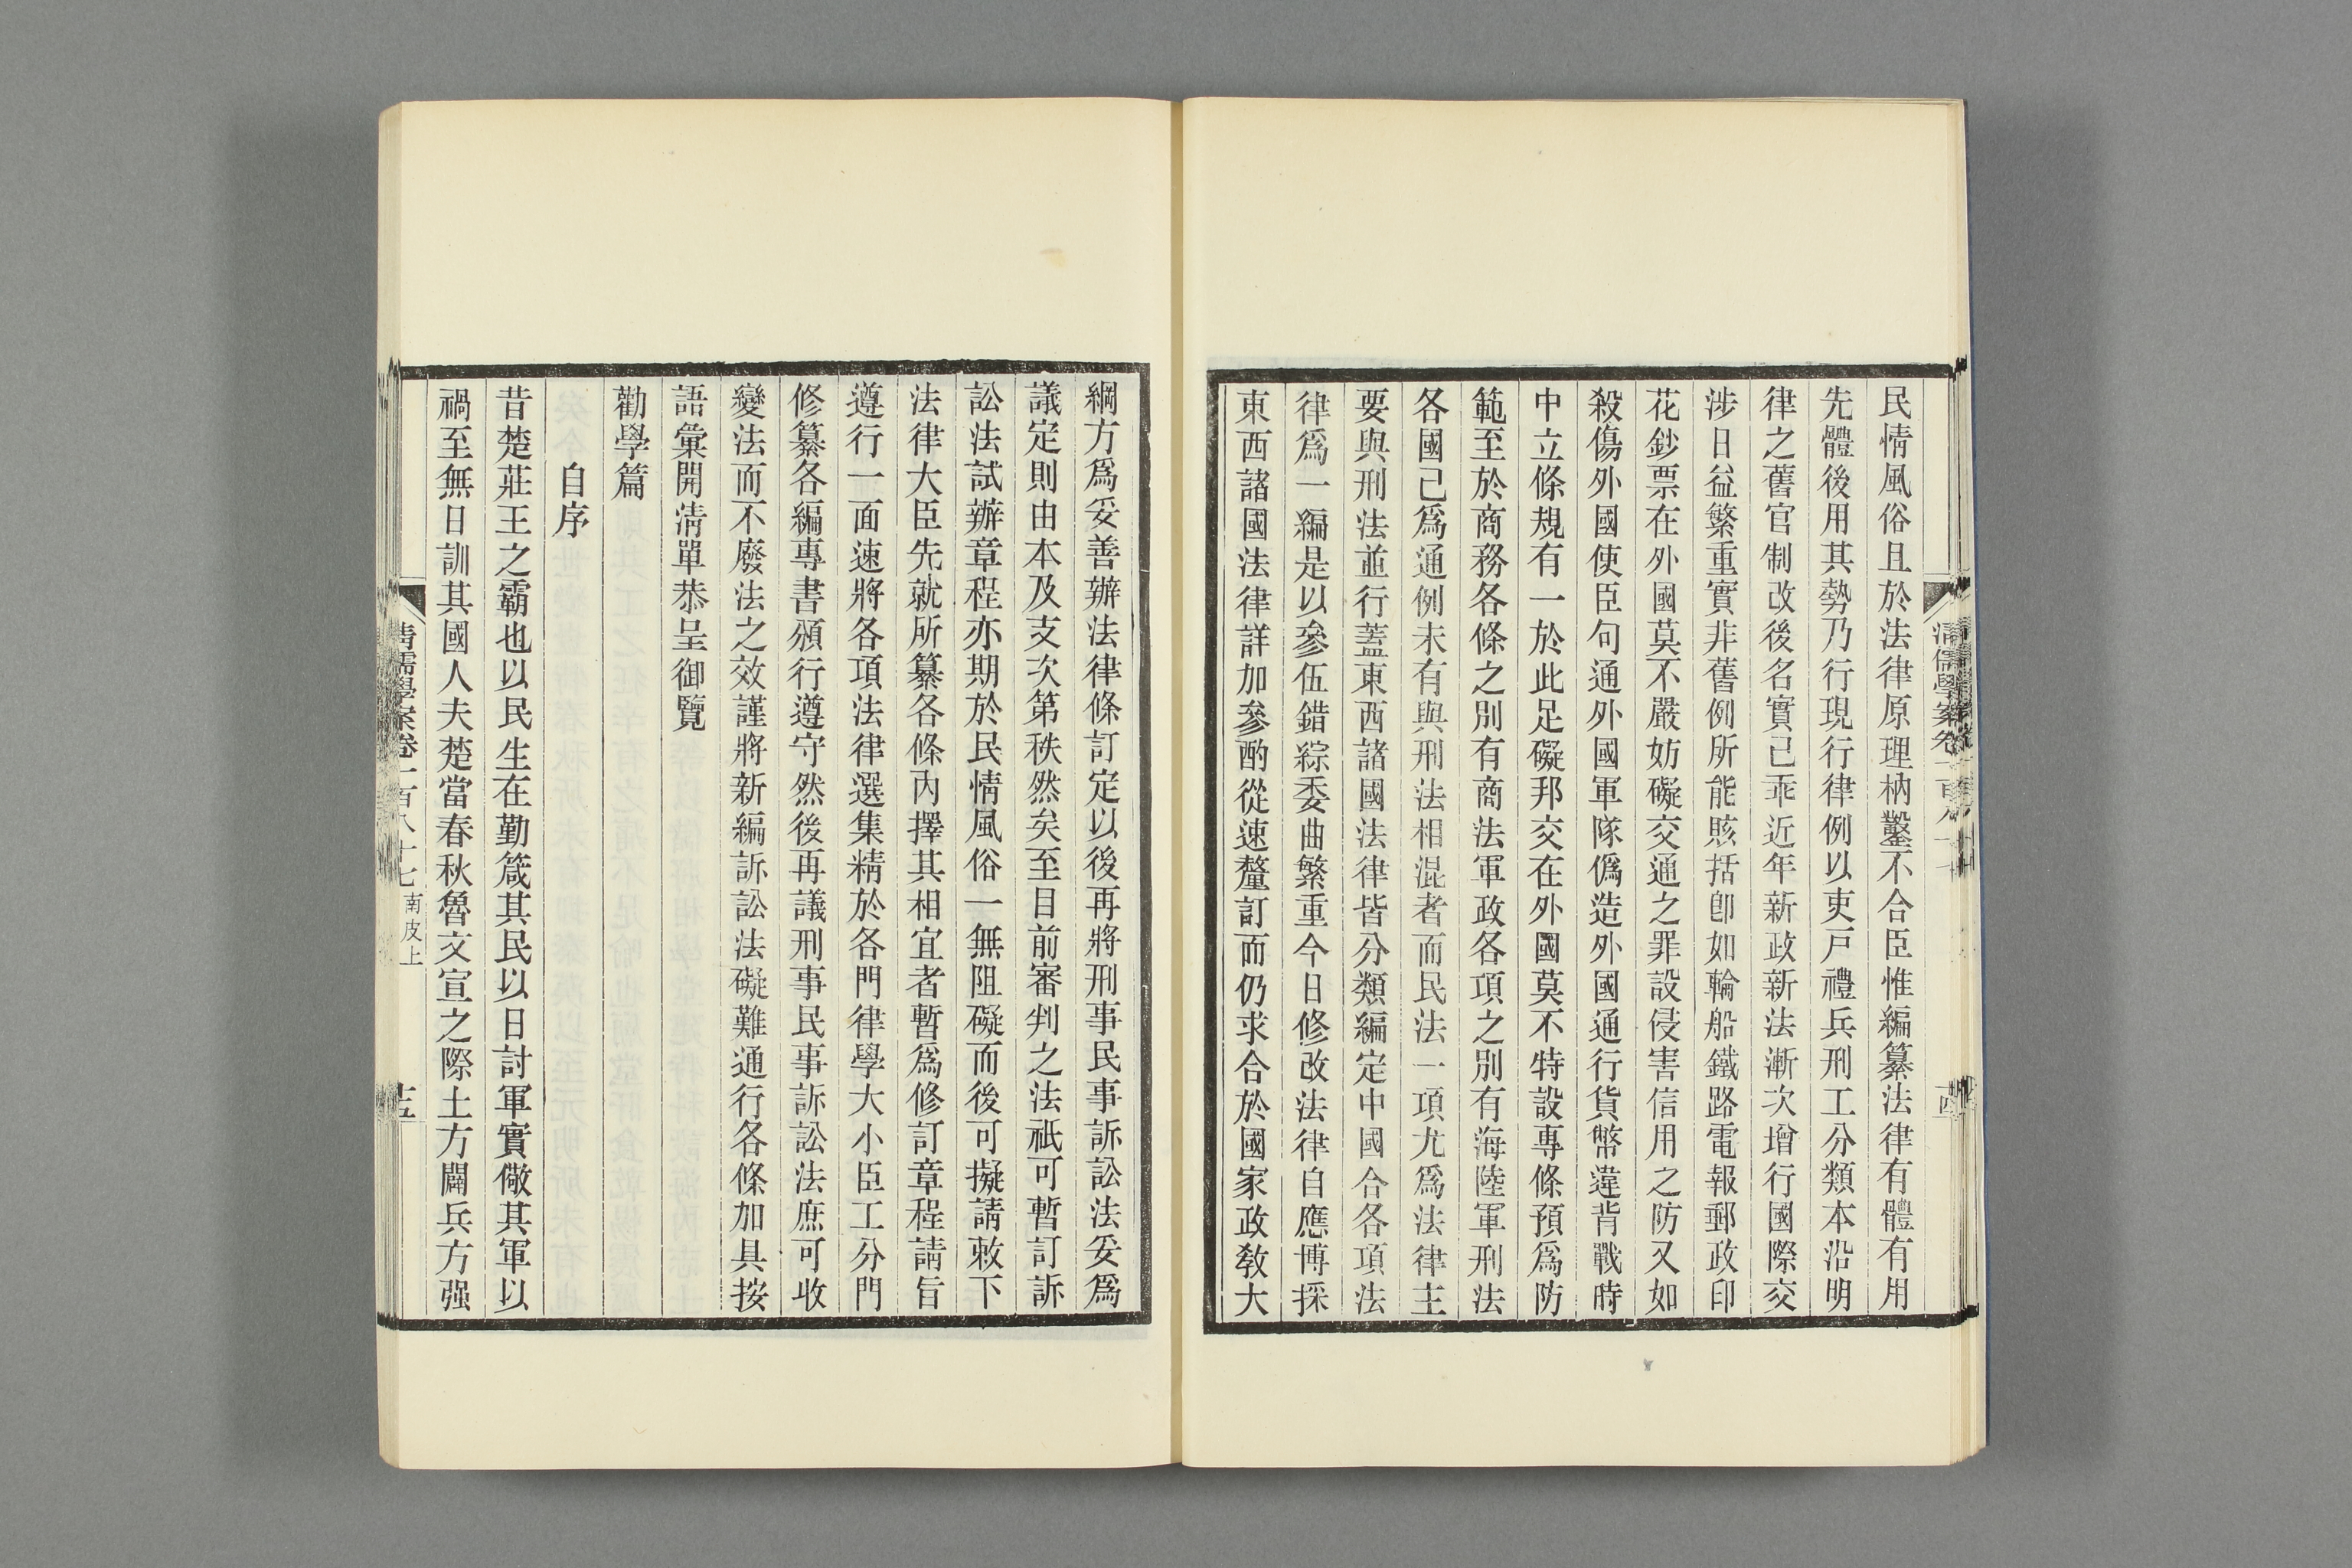 民情風俗且於法律原理枘鑿不合臣惟編纂法律有體有用
先體後用其勢乃行現行律例以吏戸禮兵刑工分類本沿明
律之舊官制改後名實已乖近年新政新法漸次增行國際交
涉日益繁重實非舊例所能賅括卽如輪船鐵路電報郵政印
花鈔票在外國莫不嚴妨礙交通之罪設侵害信用之防又如
殺傷外國使臣句通外國軍隊僞造外國通行貨幣違背戰時
中立條規有一於此足礙邦交在外國莫不特設專條預爲防
範至於商務各條之別有商法軍政各項之別有海陸軍刑法
各國已爲通例未有與刑法相混者而民法一項尤爲法律主
要與刑法並行蓋東西諸國法律皆分類編定中國合各項法
律爲一編是以參伍錯綜委曲繁重今日修改法律自應博採
東西諸國法律詳加參酌從速釐訂而仍求合於國家政敎大
清儒學案卷一百八十七
十四
綱方爲妥善辦法律條訂定以後再將刑事民事訴訟法妥爲
議定則由本及支次第秩然矣至目前審判之法祇可暫訂訴
訟法試辦章程亦期於民情風俗一無阻礙而後可擬請敕下
法律大臣先就所纂各條內擇其相宜者暫爲修訂章程請旨
遵行一面速將各項法律選集精於各門律學大小臣工分門
修纂各編專書頒行遵守然後再議刑事民事訴訟法庶可收
變法而不廢法之效謹將新編訴訟法礙難通行各條加具按
語彙開淸單恭呈御覽
勸學篇
自序
昔楚莊王之霸也以民生在勤箴其民以日討軍實儆其軍以
禍至無日訓其國人夫楚當春秋魯文宣之際土方闢兵方强
清儒學案卷一百八十七 南皮上
十五